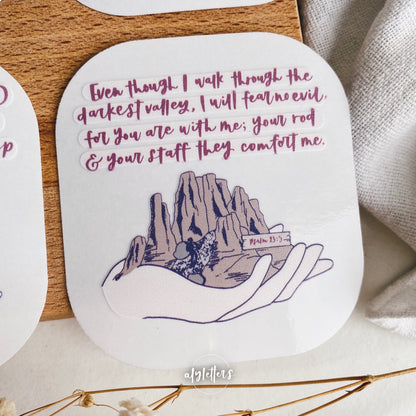 Even though I walk through the
darkest valley, I will fear no evil,
for you are with me; your rod
& your staff they comfort me.
Psalm 23:4
afyletters